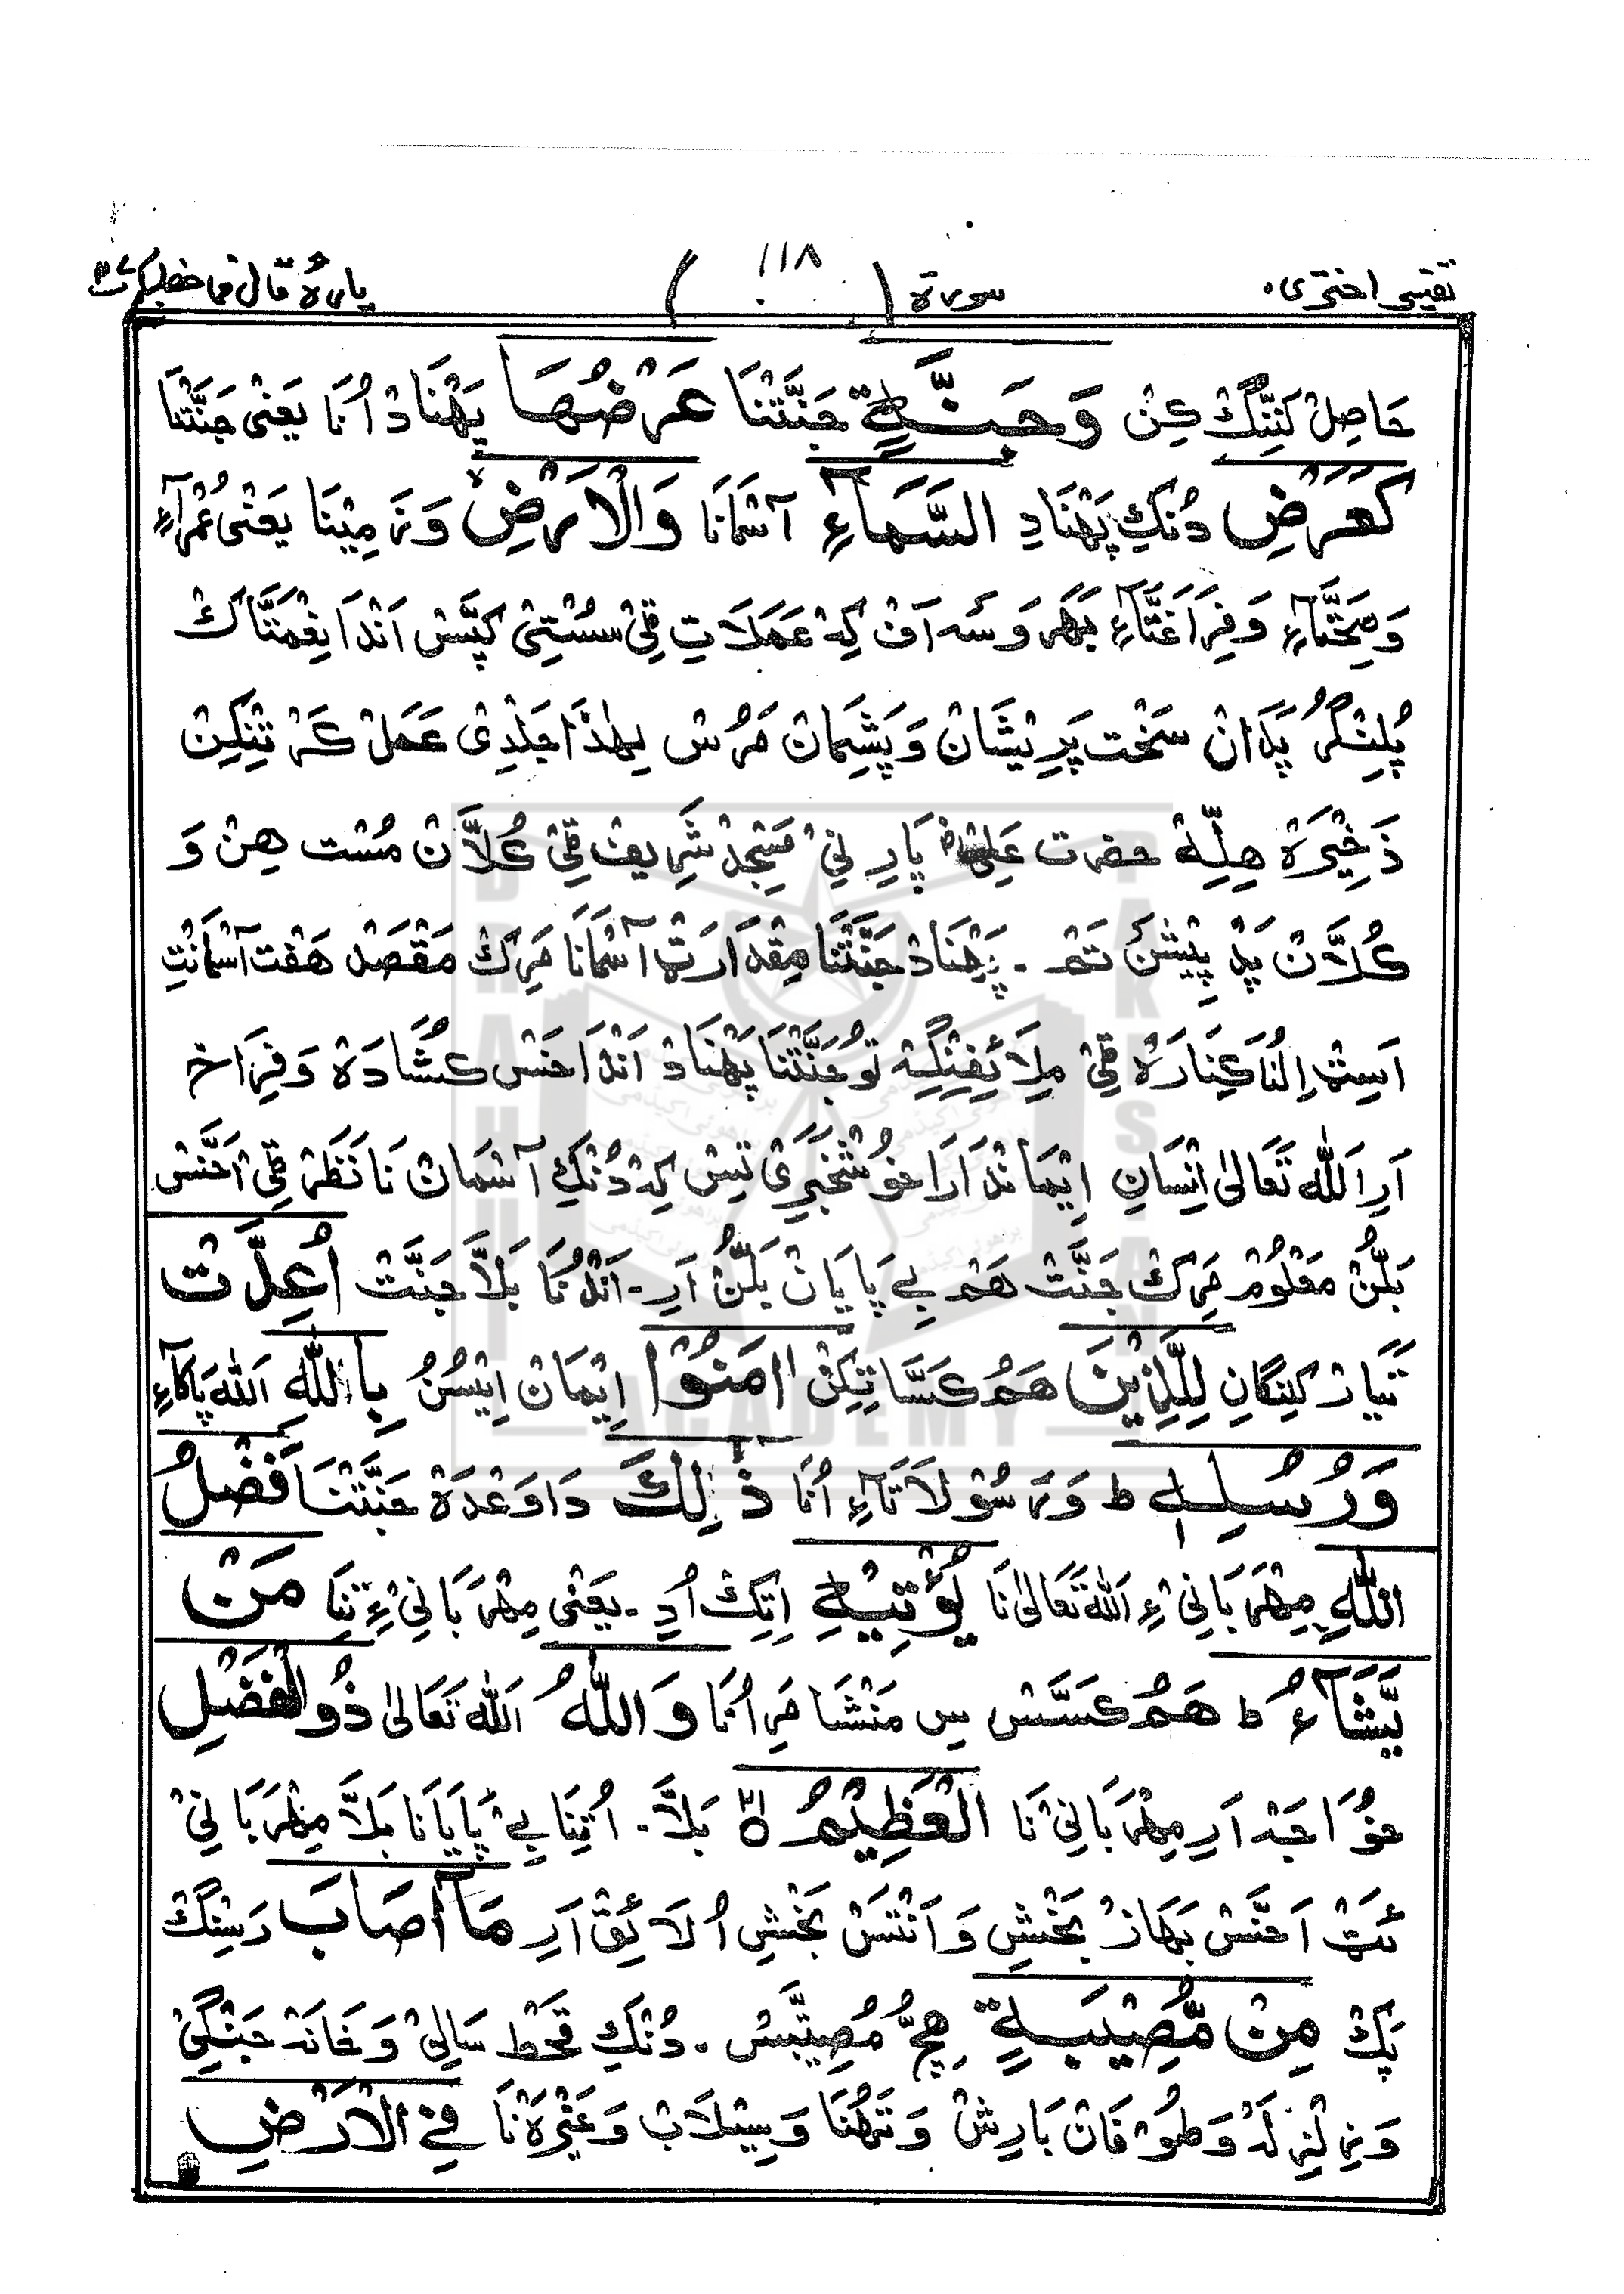 تفسیر اختری
سورة ( ١١٨ )
پارہ قال فما خطبکم ٢٧
حَاصِلْ کَنِنِّگْ کِنْ وَجَنَّةٍ جَنَّتْنَا عَرْضُهَا پَهْنَادْ اُنَا یَعْنٰی جَنَّتْنَا
کَعَرْضِ دُنْکِ پَهْنَادِ السَّمَآءِ آسْمَانَا وَالْاَرْضِ وَزَمِیْنَا یَعْنٰی عُمْرَآءِ
وَصِحَّتَآءِ وَفِرَاغَتَّآءِ بَهَرْوَسَه اَفْ کِهْ عَمَلَاتِ ٹِیْ سُسْتِیْ کَپَّسْ اَنْدَا نِعْمَتَّاکْ
پُلِنْگرُ پَدَانْ سَخْت پَرِیْشَانْ وَپَشِمَانْ مَرُسْ لِهٰذَا جَلْدِیْ عَمَلْ کَرْ تِنْکِنْ
ذَخِیْرَهْ هِلِّهْ حضرت عَلِیْ پَارِ نِیْ مَسْجِدْ شَرِیف ٹِیْ کُلَّانْ مُسْت هِنْ وَ
کُلَّانْ پَدْ پِیْشَنْ تَمْ ۔ پَهْنَادْ جَنَّتْنَا مِقْدَارَتْ آسْمَانَا مَرِکْ مَقْصَدْ هَفْت آسْمَانْتِ
اَسِتْمِ اِلْنَا کِنَارَهْ ٹِیْ مِلَائِفِنْگِهْ تَوْ جَنَّتْنَا پَهْنَادْ اَنْدَاخَسْ کُشَّادَهْ وَفِرَاخْ
اَرِ اَللّٰه تَعَالٰی اِنْسَانِ اِیْمَانْدَارَا خُوشْخَبَرِیْ تِسْ کِهْ دُنْکِ آسْمَانْ نَا نَظَرْ ٹِیْ اَخَّسْ
بَلُّنْ مَعْلُوْمْ مَرِکْ جَنَّتْ هَمْ بے پَایَانْ بَلُّنْ اَرِ ۔ اَنْدُنَا بَلَّا جَنَّتْ اُعِدَّتْ
تَیَارْ کَنِنْگَانِ لِلَّذِیْنَ هَمُ کَسَّاتِکِنْ اٰمَنُوْا اِیْمَانْ اِیْسُنُ بِاللّٰهِ اَللّٰه پَاکَآءِ
وَرُسُلِهٖ ط وَرَسُوْلَاتَآءِ اُنَا ذٰلِکَ دَاوَعْدَهْ جَنَّتْنَا فَضْلُ
اللّٰهِ مِهْرَبَانِیْ ءِ اَللّٰه تَعَالٰی نَا یُؤْتِیْهِ اِتِکْ اُدِ ۔ یَعْنٰی مِهْرَبَانِیْ ءِ تِنَا مَنْ
یَّشَآءُ ط هَمُ کَسَّسْ سِ مَنْشَا مَرِ اُنَا وَاللّٰهُ اَللّٰه تَعَالٰی ذُو الْفَضْلِ
خُوَاجَه اَرِ مِهْرَبَانِیْ نَا الْعَظِیْمِ بَلَّا ۔ اُتِنَا بے پَایَانَا بَلَّا مِهْرَبَانِیْ
ئَتْ اَخَّسْ بَهَازْ بَخْشِ وَاَنْتَسْ بَخْشِ اُ لَائِقْ اَرِ مَآ اَصَابَ رَسِنْگکْ
پَکْ مِنْ مُّصِیْبَةٍ هِچُّ مُصِیْبَسْ ۔ دُنْکِ قَحْط سَالِیْ وَخَانَه جَنْگِیْ
وَزِلْزِلَهْ وَطُوْفَانْ بَارِشْ وَتَهُنَا وَسِیْلَابْ وَغَیْرَهْ نَا فِی الْاَرْضِ
BRAHUI
ACADEMY
PAKISTAN